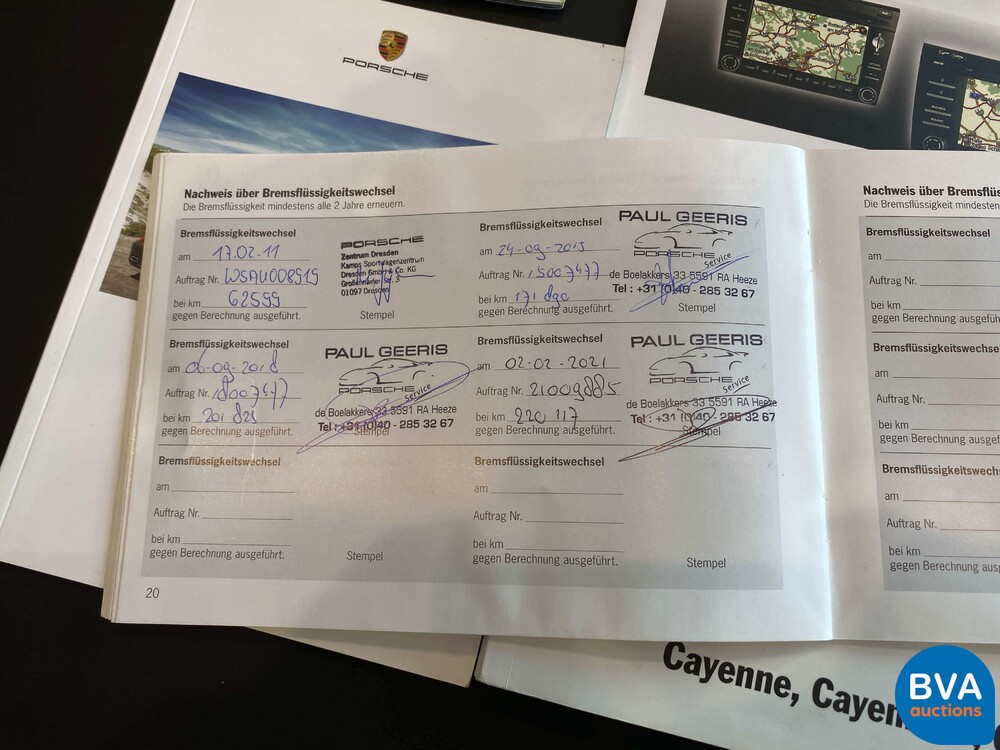 PORSCHE
Nachweis über Bremsflüssigkeitswechsel
Die Bremsflüssigkeit mindestens alle 2 Jahre erneuern.
Bremsflüssigkeitswechsel
am 17.02.11
Auftrag Nr. WSAU008919
bei km 62599
gegen Berechnung ausgeführt.
PORSCHE
Zentrum Dresden
Kamps Sportwagenzentrum
Dresden GmbH & Co. KG
01097 Dresden
Stempel
Bremsflüssigkeitswechsel
am 24-09-2015
Auftrag Nr. 15007477
bei km 171
gegen Berechnung ausgeführt.
PAUL GEERIS
PORSCHE Service
de Boelakkers 33 5591 RA Heeze
Tel : +31 (0)40 - 285 32 67
Stempel
Bremsflüssigkeitswechsel
am 06-09-2018
Auftrag Nr. 18007477
bei km 201 825
gegen Berechnung ausgeführt.
PAUL GEERIS
PORSCHE Service
de Boelakkers 33 5591 RA Heeze
Tel : +31 (0)40 - 285 32 67
Stempel
Bremsflüssigkeitswechsel
am 02-02-2021
Auftrag Nr. 21009885
bei km 220 117
gegen Berechnung ausgeführt.
PAUL GEERIS
PORSCHE Service
de Boelakkers 33 5591 RA Heeze
Tel : +31 (0)40 - 285 32 67
Stempel
Bremsflüssigkeitswechsel
am
Auftrag Nr.
bei km
gegen Berechnung ausgeführt.
Stempel
Bremsflüssigkeitswechsel
am
Auftrag Nr.
bei km
gegen Berechnung ausgeführt.
Stempel
20
Nachweis über Bremsflüss
Die Bremsflüssigkeit mindesten
Bremsflüssigkeitswech
am
Auftrag Nr.
bei km
gegen Berechnung ausgefüh
Bremsflüssigkeitswechs
am
Auftrag Nr.
bei km
gegen Berechnung ausgefüh
Bremsflüssigkeitswechs
am
Auftrag Nr.
bei km
gegen Berechnung ausg
Cayenne, Cayen
BVA
auctions